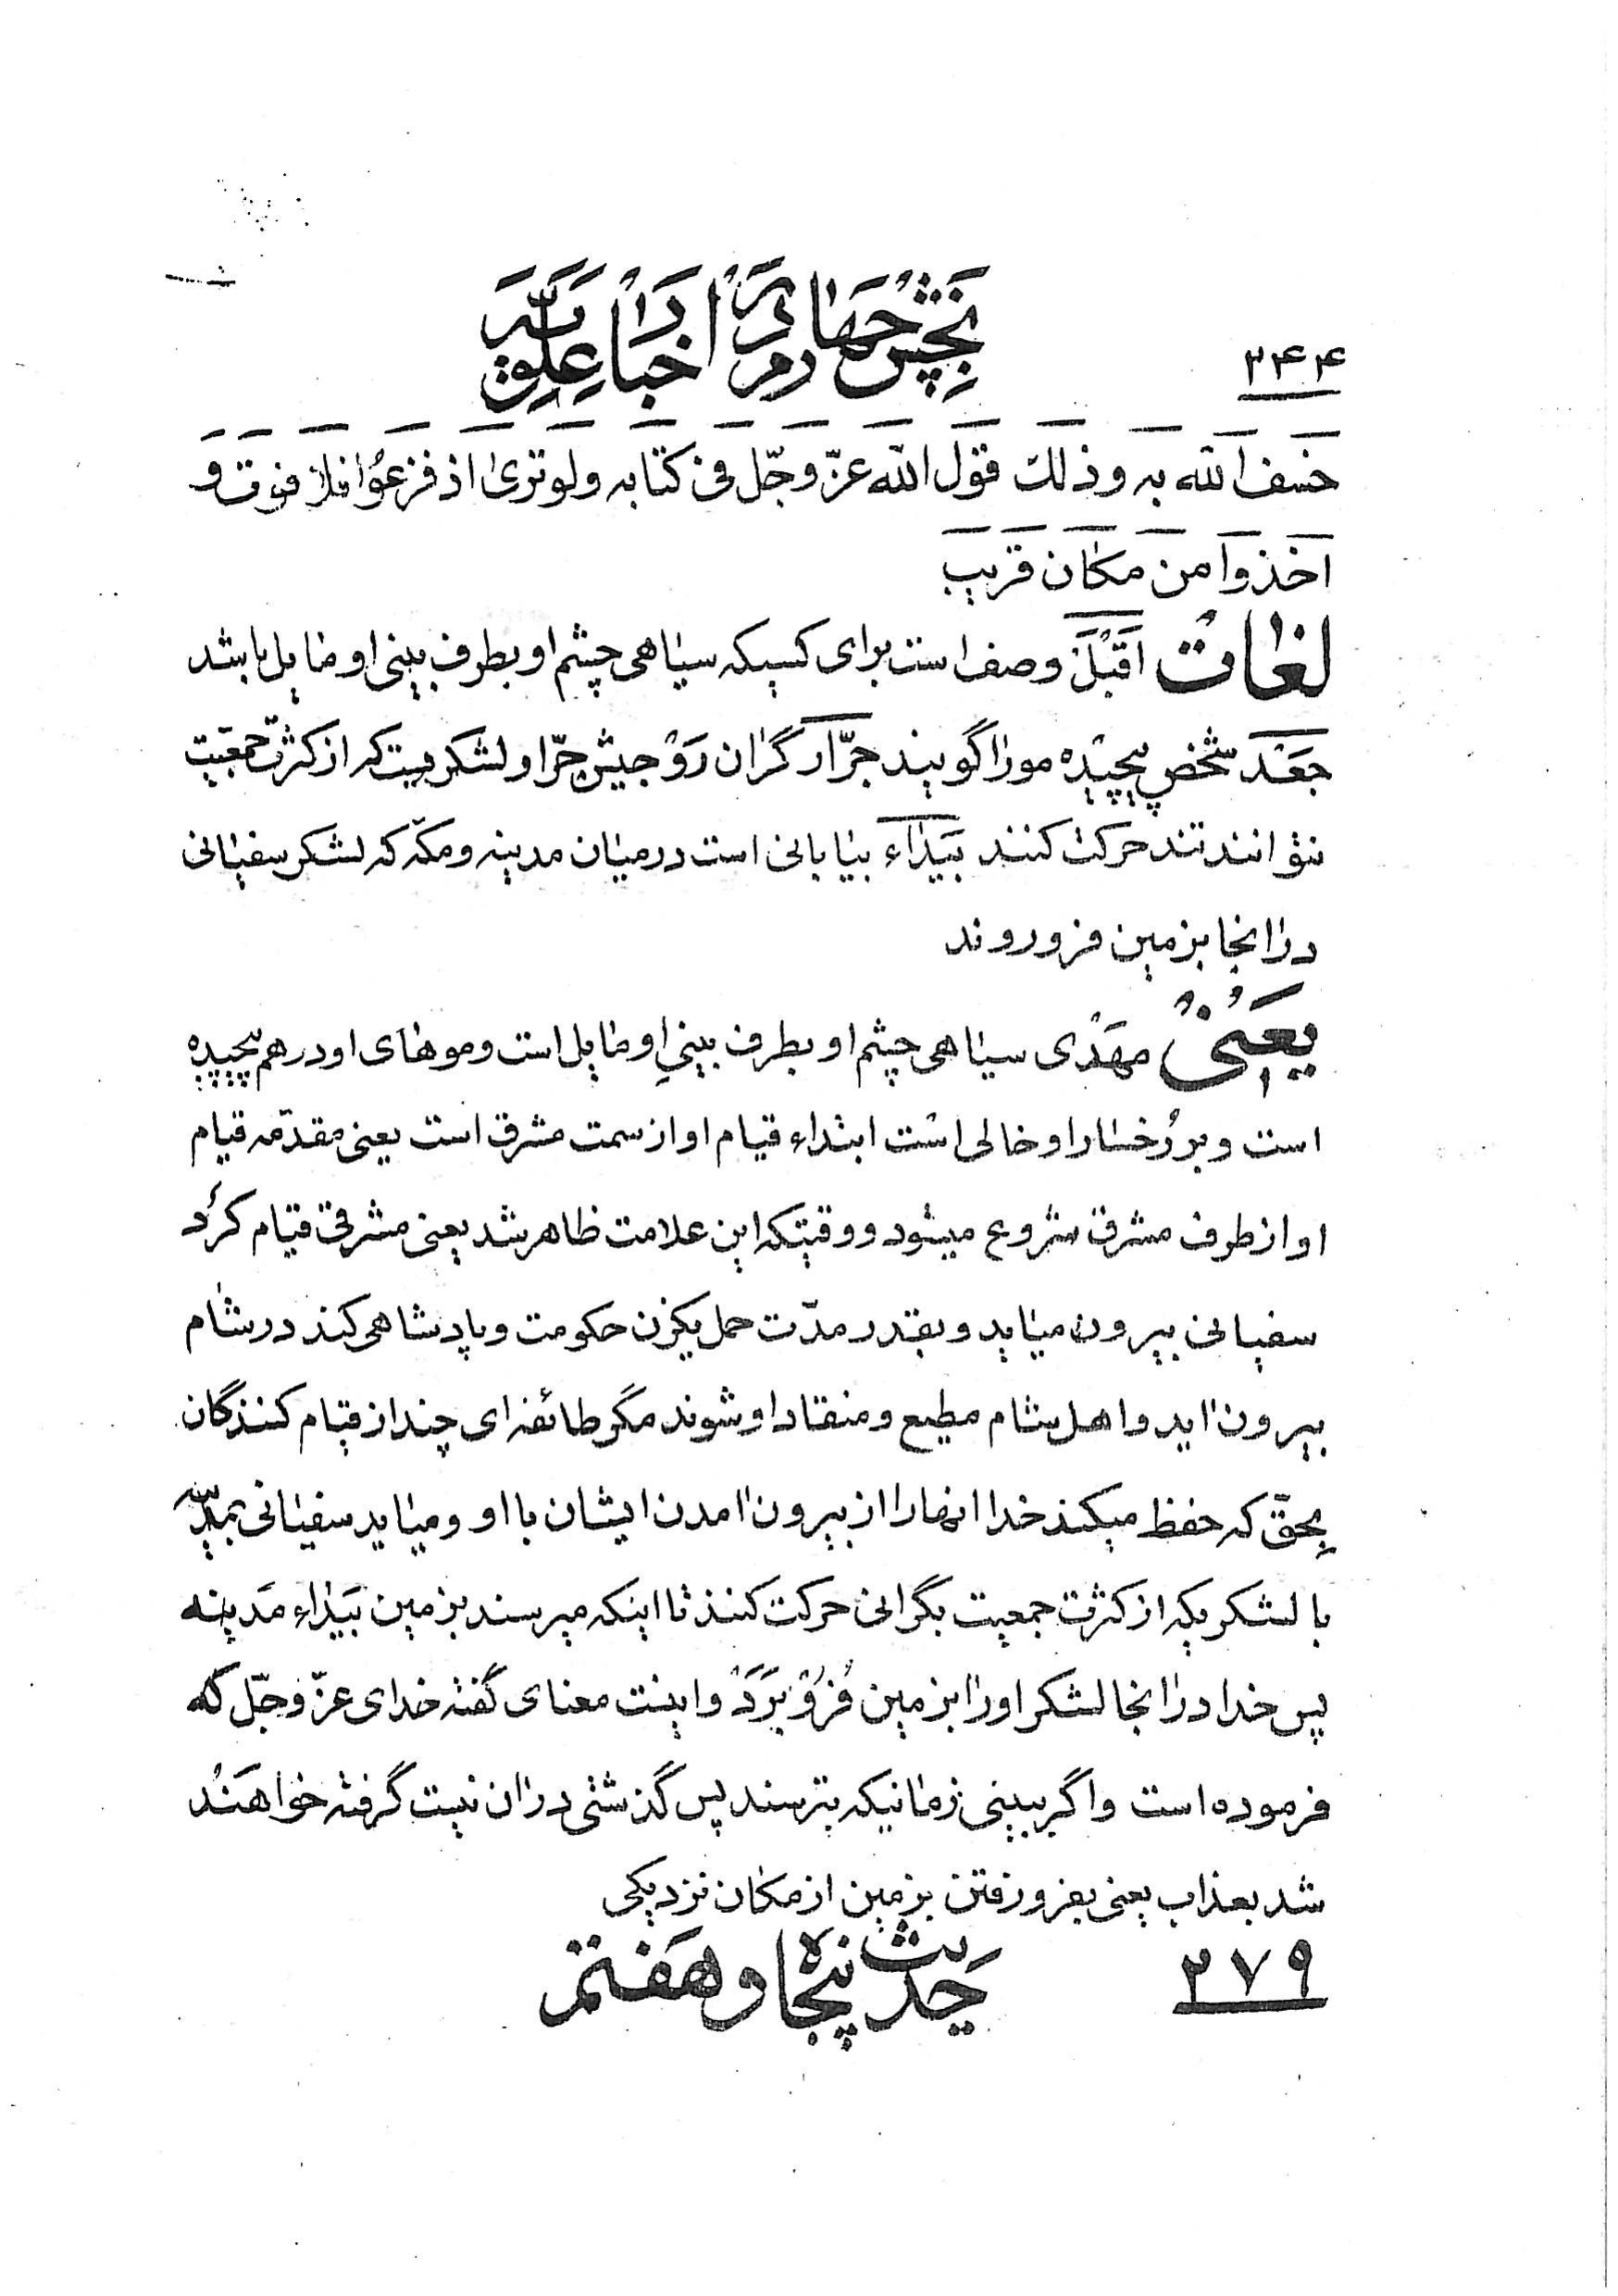 ۲۴۴
بخش چهارم در اخبار علویه
خسف الله به وذلك قول الله عزّ وجّل فی کتابه ولو تری اذ فزعُوا فلا فوت و
اخذوا من مکان قریب
لغات اَقْبَلَ وصف است برای کسیکه سیاهی چشم او بطرف بینی او مایل باشد
جَعْد شخص پیچیده مو را گویند جرّار گران رَوْ جیش جرّار لشکریست که از کثرت جمعیّت
نتوانند تند حرکت کنند بَیْداء بیابانی است در میان مدینه و مکّه که لشکر سفیانی
در انجا بزمین فرو روند
یَعنی مهْدی سیاهی چشم او بطرف بینیِ او مایل است و موهای او درهم پیچیده
است و بر رُخسار او خالی است ابتداء قیام او از سمت مشرق است یعنی مقدّمه قیام
او از طرف مشرق شروع میشود و وقتیکه این علامت ظاهر شد یعنی مشرقی قیام کرد
سفیانی بیرون میاید و بقدر مدّت حمل یکزن حکومت و پادشاهی کند در شام
بیرون اید و اهل شام مطیع و منقاد او شوند مگر طائفه ای چند از قیام کنندگان
بِحقّ که حفظ میکند خدا انها را از بیرون امدن ایشان با او و میاید سفیانی بمدینه
با لشکریکه از کثرت جمعیت بگرانی حرکت کنند تا اینکه میرسند بزمین بَیْداء مَدینه
پس خدا در انجا لشکر او را بزمین فُرُوْ بَرَدْ و اینست معنای گفته خدای عزّ وجّل که
فرموده است و اگر ببینی زمانیکه بترسند پس گذشتی در ان نیست گرفته خواهَند
شد بعذاب یعنی بفرو رفتن بزمین از مکان نزدیکی
۲۷۹
حَدیث پنجاه و هَفتم